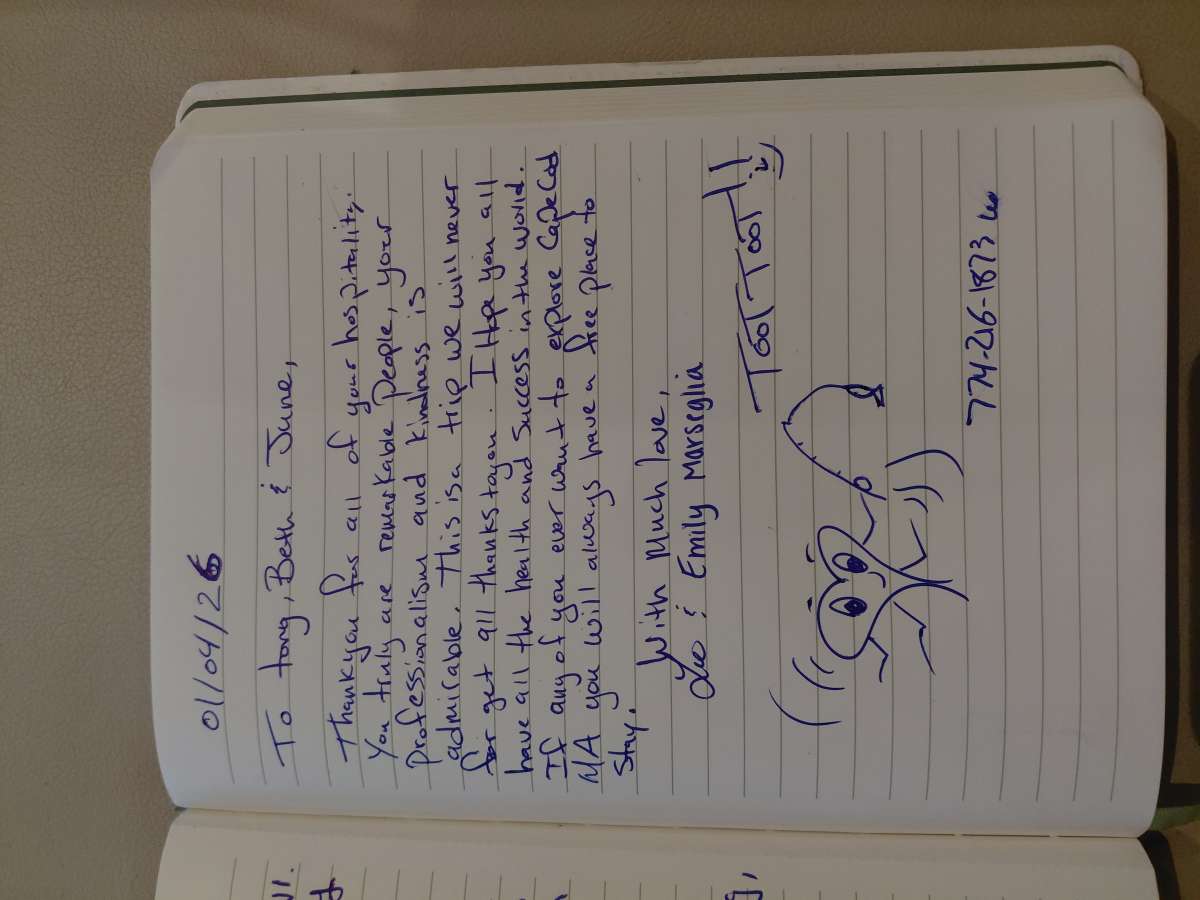 01/04/26
To tony, Beth & June,
Thankyou for all of your hospitality.
You truly are remarkable People, your
Professionalism and kindness is
admirable. This is a trip we will never
for get all thanks to you. I Hope you all
have all the health and Success in the world.
If any of you ever want to explore Cape Cod
MA you will always have a free place to
Stay.
With Much love,
Leo & Emily Marseglia
TOOT TOOT!!
774-216-1873